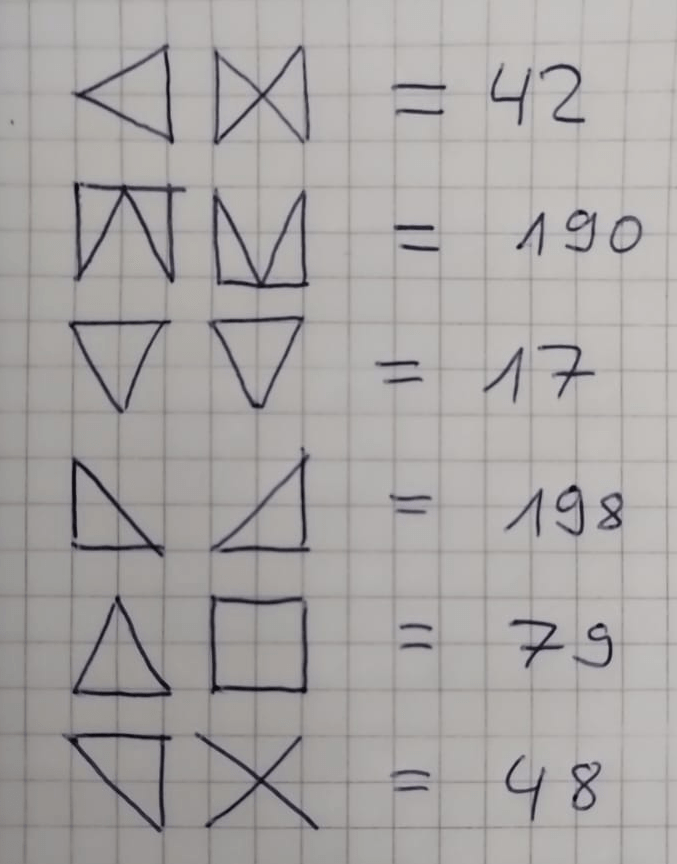 = 42
= 190
= 17
= 198
= 79
= 48